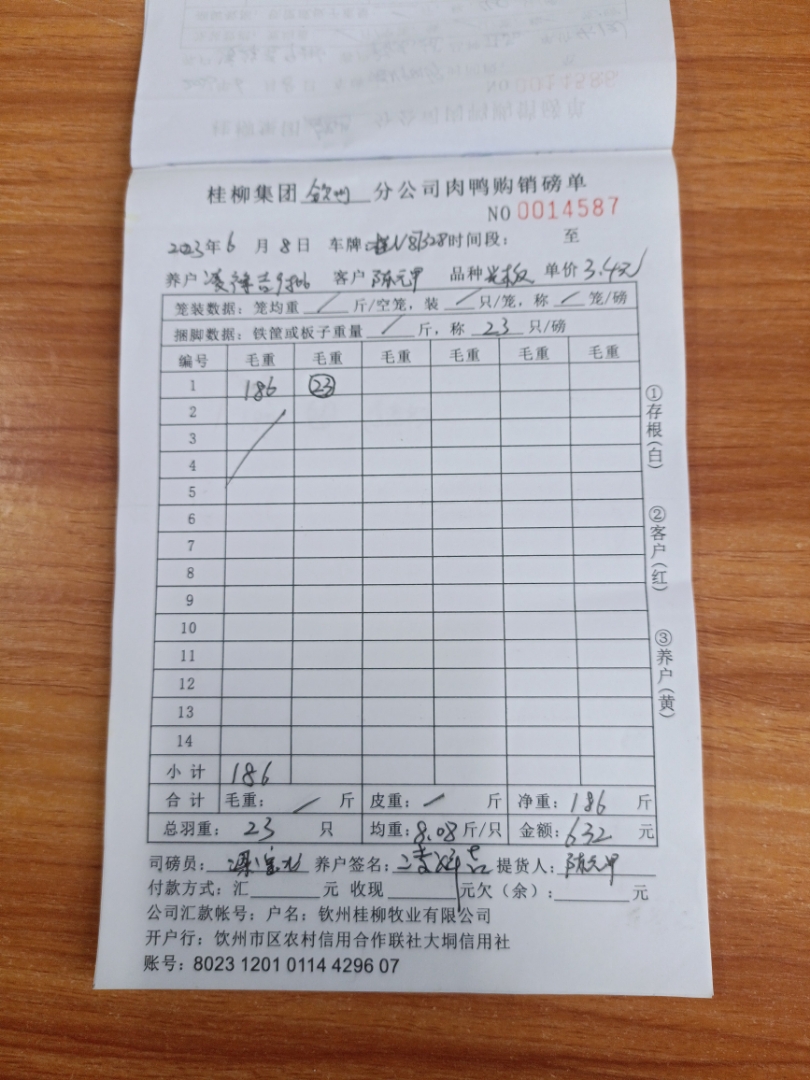 桂柳集团钦州分公司肉鸭购销磅单
NO 0014587
2023年6月8日 车牌:桂N87528时间段: 至
养户 客户 陈元甲 品种 单价 3.4元
笼装数据:笼均重 / 斤/空笼,装 / 只/笼,称 / 笼/磅
捆脚数据:铁筐或板子重量 / 斤,称 23 只/磅
编号 毛重 毛重 毛重 毛重 毛重 毛重
1 186 23
2
3
4
5
6
7
8
9
10
11
12
13
14
小计 186
合计 毛重: / 斤 皮重: / 斤 净重: 186 斤
总羽重: 23 只 均重: 8.08 斤/只 金额: 632 元
司磅员: 养户签名: 提货人: 陈元甲
付款方式:汇 元 收现 元欠(余): 元
公司汇款帐号:户名:钦州桂柳牧业有限公司
开户行:钦州市区农村信用合作联社大垌信用社
账号:8023 1201 0114 4296 07
①存根(白)
②客户(红)
③养户(黄)